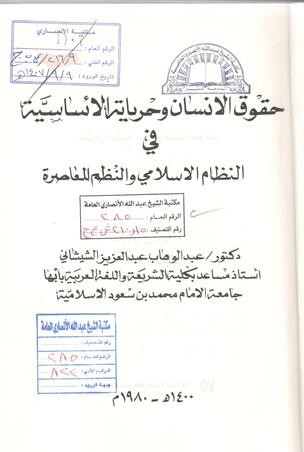 مكتبة الأنصاري
الرقم العام:
الرقم الفني:
تاريخ الورود: ١٤٠٧/٩/٩
حقوق الانسان وحرياته الأساسية
في
النظام الاسلامي والنظم المعاصرة
مكتبة الشيخ عبد الله الأنصاري العامة
الرقم العام: ٢٨٥
رقم التصنيف:
دكتور/عبد الوهاب عبد العزيز الشيشاني
استاذ مساعد بكلية الشريعة واللغة العربية بأبها
جامعة الامام محمد بن سعود الاسلامية
مكتبة الشيخ عبد الله الأنصاري العامة
رقم التصنيف:
الرقم العام: ٢٨٥
جهة الورود:
١٤٠٠هـ - ١٩٨٠م